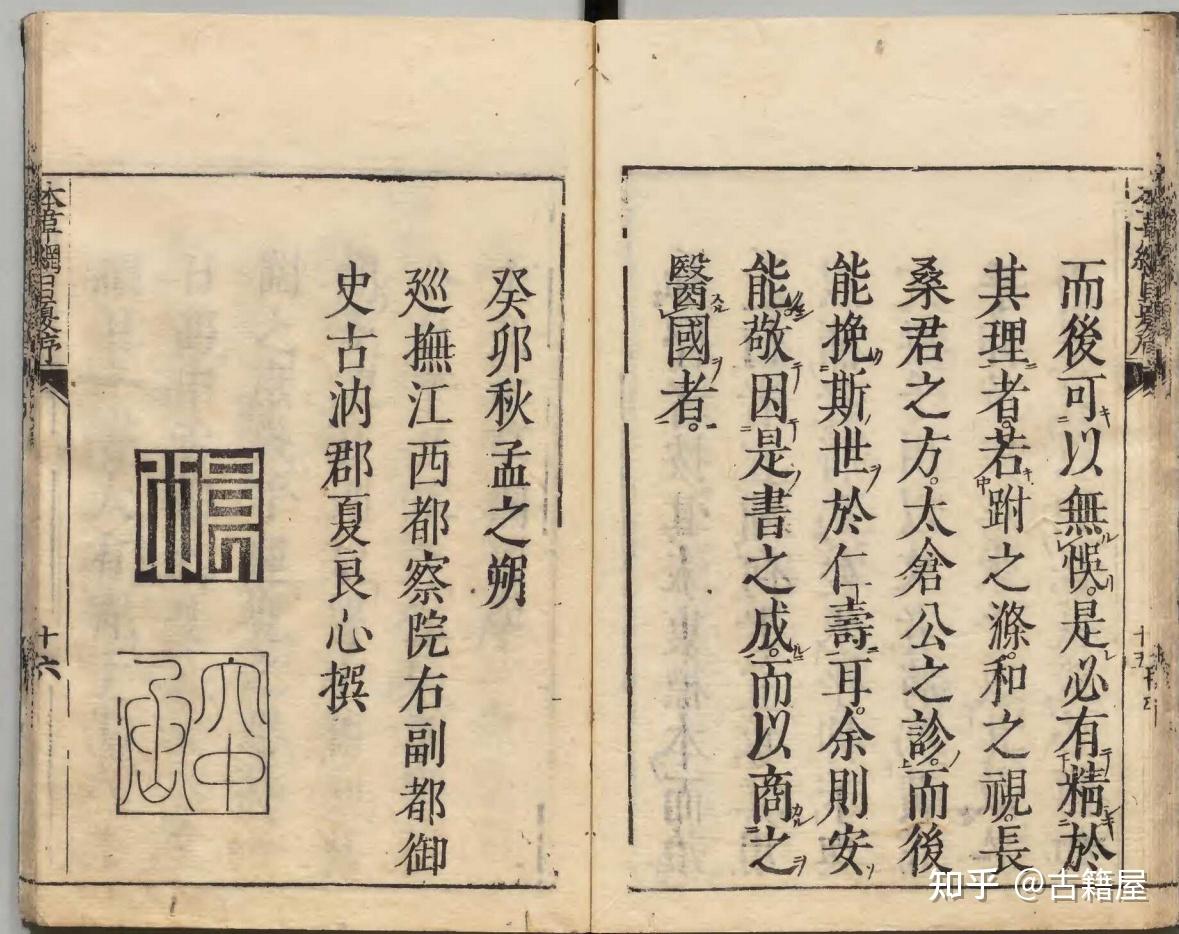 而後可以無悞。是必有精於
其理者。若跗之滌。和之視。長
桑君之方。太倉公之診。而後
能挽斯世於仁壽耳。余則安
能敬因是書之成。而以商之
醫國者。
癸卯秋孟之朔
廵撫江西都察院右副都御
史古汭郡夏良心撰
本草綱目夏序
十六
知乎 @古籍屋